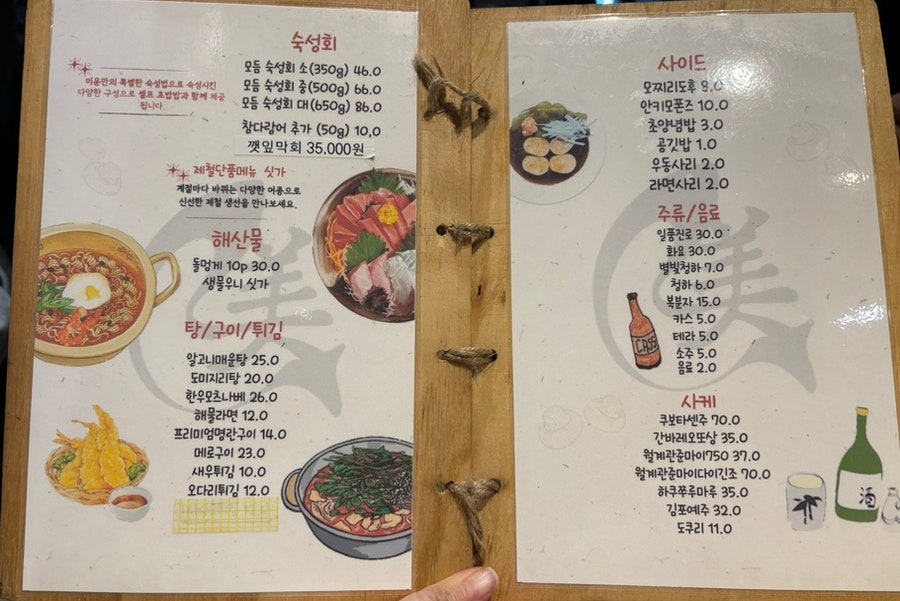 숙성회
미윤만의 특별한 숙성법으로 숙성시킨
다양한 구성으로 셀프 초밥밥과 함께 제공
됩니다.
모듬 숙성회 소(350g) 46.0
모듬 숙성회 중(500g) 66.0
모듬 숙성회 대(650g) 86.0
참다랑어 추가 (50g) 10.0
깻잎막회 35.000원
제철단품메뉴 싯가
계절마다 바뀌는 다양한 어종으로
신선한 제철 생선을 만나보세요.
해산물
돌멍게 10p 30.0
생물우니 싯가
탕/구이/튀김
알고니매운탕 25.0
도미지리탕 20.0
한우모츠나베 26.0
해물라면 12.0
프리미엄명란구이 14.0
메로구이 23.0
새우튀김 10.0
오다리튀김 12.0
사이드
모찌리도후 8.0
안키모폰즈 10.0
초양념밥 3.0
공깃밥 1.0
우동사리 2.0
라면사리 2.0
주류/음료
일품진로 30.0
화요 30.0
별빛청하 7.0
청하 6.0
복분자 15.0
카스 5.0
테라 5.0
소주 5.0
음료 2.0
CASS
사케
쿠보타센주 70.0
간바레오또상 35.0
월계관준마이750 37.0
월계관준마이다이긴조 70.0
하쿠쭈루마루 35.0
김포예주 32.0
도쿠리 11.0
酒
美
美